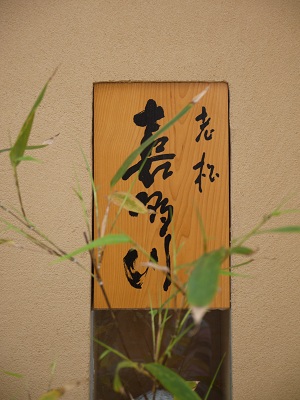 老松
喜多川